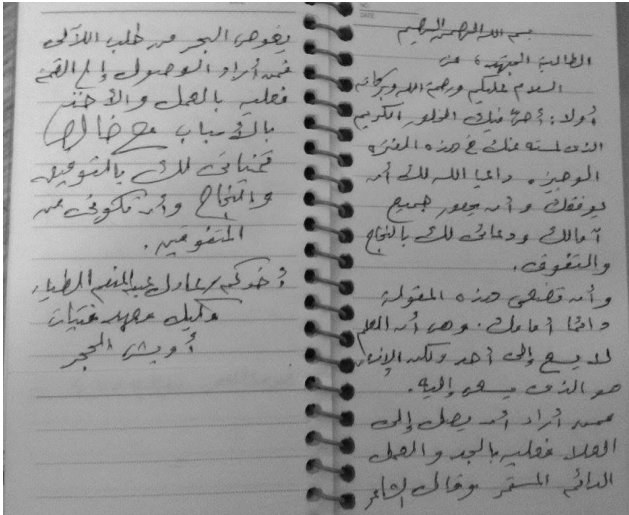 بسم الله الرحمن الرحيم
الطالبة المجتهدة /
السلام عليكم ورحمة الله وبركاته
أولا: أحيي فيك الخلق الكريم
الذي لمسته منك في هذه الفترة
الوجيزة. داعيا الله لك أن
يوفقك وأن يحقق جميع
آمالك ودعائي لك بالنجاح
والتفوق.
وأن تضعي هذه المقولة
دائما أمامك. وهي أن العلم
لا يسعى إلى أحد ولكن الإنسان
هو الذي يسعى إليه.
فمن أراد أن يصل إلى
العلا فعليه بالجد والعمل
الدائم المستمر وقال الشاعر
يغوص البحر من طلب اللآلئ
فمن أراد الوصول إلى القمة
فعليه بالعمل والأخذ
بالأسباب مع خالص
تمنياتي لك بالتوفيق
والنجاح وأن تكوني من
المتفوقين.
أخوكم / عادل عبد المنعم الطيار
وكيل معهد فتيات
أويش الحجر
NO.
DATE